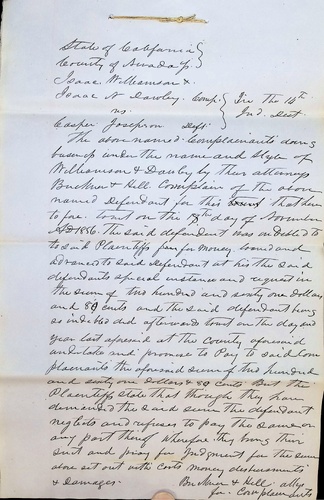 State of California }
County of Nevada }
Isaac Williamson &
Isaac N Dawley Comp. } In the 14th
vs. Jud. Dist
Casper Josephson Deft
The above named Complainants doing
business under the name and style of
Williamson & Dawley by their attorneys
Buckner & Hill Complain of the above
named Defendant for this that here
to fore. towit on the day of November
AD 1856. The said defendant was indebted to
to said Plaintiffs for money loaned and
advanced to said Defendant at his the said
defendants special instance and request in
the sum of two hundred and sixty one dollars
and 89 cents and the said defendant being
so indebted did afterwards towit on the day and
year last aforesaid at the county aforesaid
undertake and promise to Pay to said Com
plainants the aforesaid sum of two hundred
and sixty one dollars & 89 cents But the
Plaintiffs state that though they have
demanded the said sum the defendant
neglects and refuses to pay the same or
any part thereof wherefore they bring their
suit and pray for Judgment for the sum
above set out with costs money disbursements
& Damages. Buckner & Hill attys
for Complainants